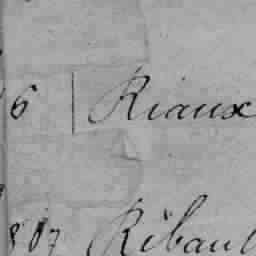 6 Riaux
807 Ribaul